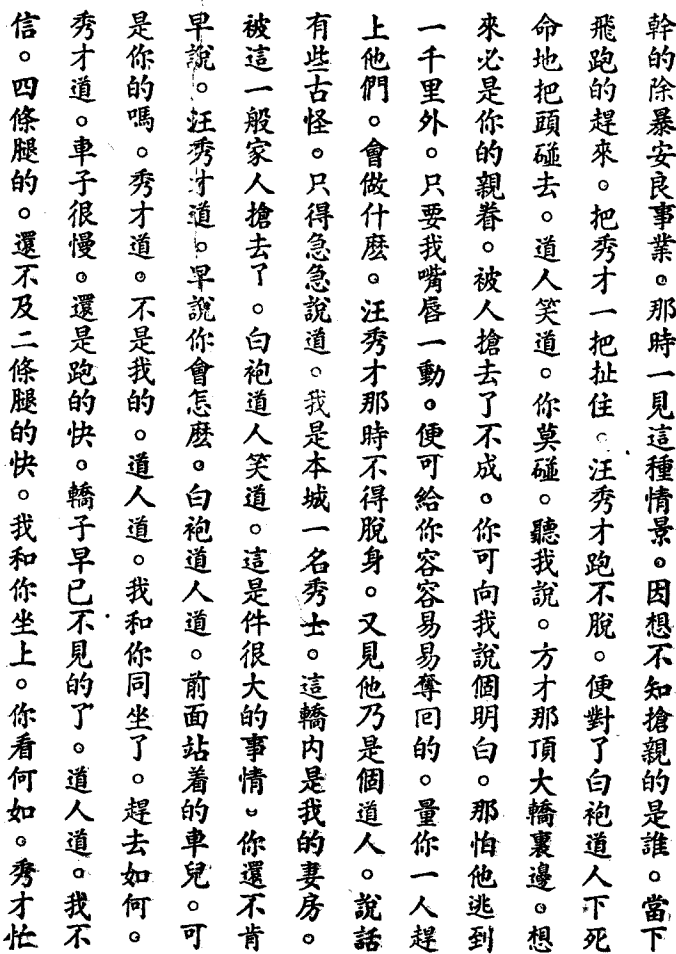 幹的除暴安良事業。那時一見這種情景。因想不知搶親的是誰。當下
飛跑的趕來。把秀才一把扯住。汪秀才跑不脫。便對了白袍道人下死
命地把頭碰去。道人笑道。你莫碰。聽我說。方才那頂大轎裏邊。想
來必是你的親眷。被人搶去了不成。你可向我說個明白。那怕他逃到
一千里外。只要我嘴唇一動。便可給你容容易易奪回的。量你一人趕
上他們。會做什麽。汪秀才那時不得脫身。又見他乃是個道人。說話
有些古怪。只得急急說道。我是本城一名秀士。這轎内是我的妻房。
被這一般家人搶去了。白袍道人笑道。這是件很大的事情。你還不肯
早說。汪秀才道。早說你會怎麽。白袍道人道。前面站着的車兒。可
是你的嗎。秀才道。不是我的。道人道。我和你同坐了。趕去如何。
秀才道。車子很慢。還是跑的快。轎子早已不見的了。道人道。我不
信。四條腿的。還不及二條腿的快。我和你坐上。你看何如。秀才忙